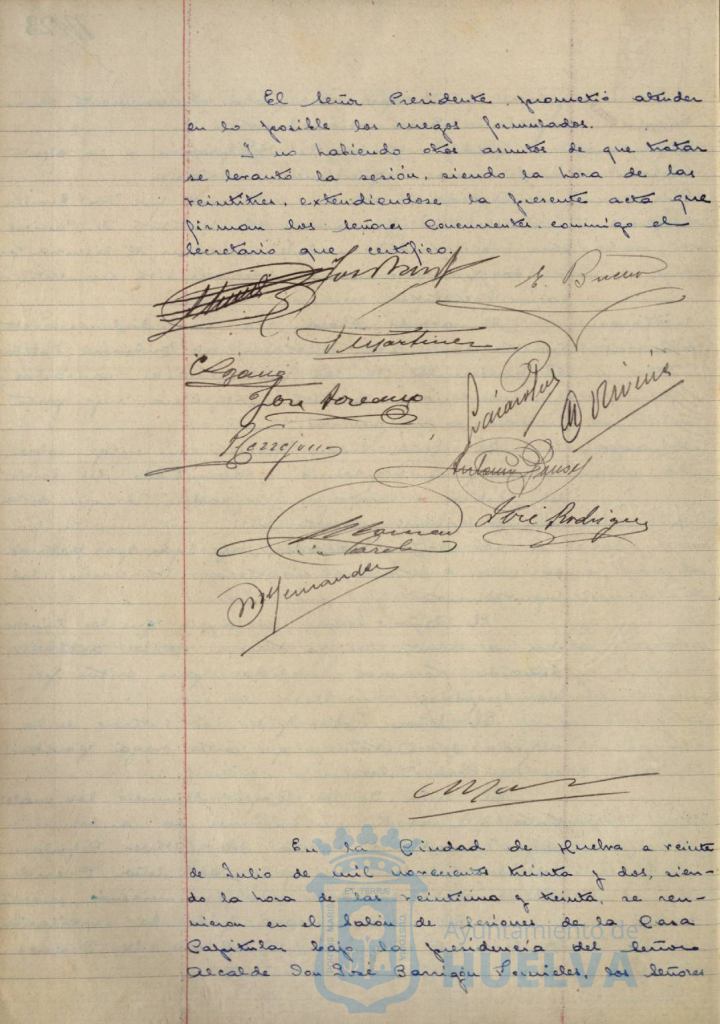 El Señor Presidente, prometió atender
en lo posible los ruegos formulados.
Y no habiendo otros asuntos de que tratar
se levantó la sesión, siendo la hora de las
veintitres, extendiendose la presente acta que
firman los Señores Concurrentes, conmigo el
Secretario que certifico.
E. Bueno
Martinez
José Soreano
Terrejon
Antonio
José Rodriguez
M Hernandez
En la Ciudad de Huelva a veinte
de Julio de mil novecientos treinta y dos, sien-
do la hora de las veintiuna y treinta, se reu-
nieron en el Salón de Sesiones de la Casa
Capitular bajo la presidencia del Señor
Alcalde Don José Barrigón Fornieles, los Señores
Ayuntamiento de
HUELVA